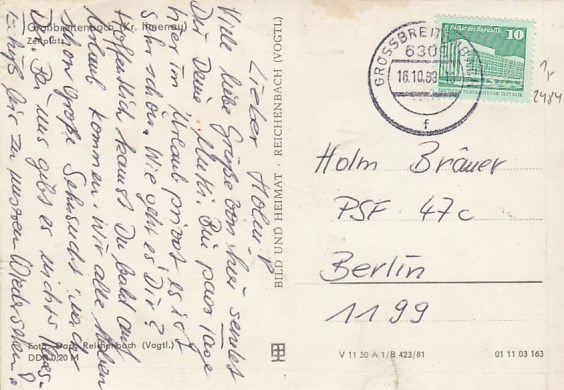 Großbreitenbach (Kr. Ilmenau)
Zeltplatz
Lieber Holm!
Viele liebe Grüße von hier sendet
Dir Deine Mutti. Bin paar Tage
hier im Urlaub privat. Es ist
sehr schön. Wie geht es Dir?
Hoffentlich kannst Du bald auf
Urlaub kommen. Wir alle haben
schon große Sehnsucht nach
Dir. Bei uns gibt es nichts
Tschüß bis zu unseren Wiedersehen!
Foto: Darr, Reichenbach (Vogtl.)
DDR 0,20 M
BILD UND HEIMAT · REICHENBACH (VOGTL)
GROSSBREITENBACH
6305
16.10.83
f
Palast der Republik
10
DEUTSCHE DEMOKRATISCHE REPUBLIK
2484
Holm Bräuer
PSF 47c
Berlin
1199
V 11 50 A 1/B 423/81
01 11 03 163